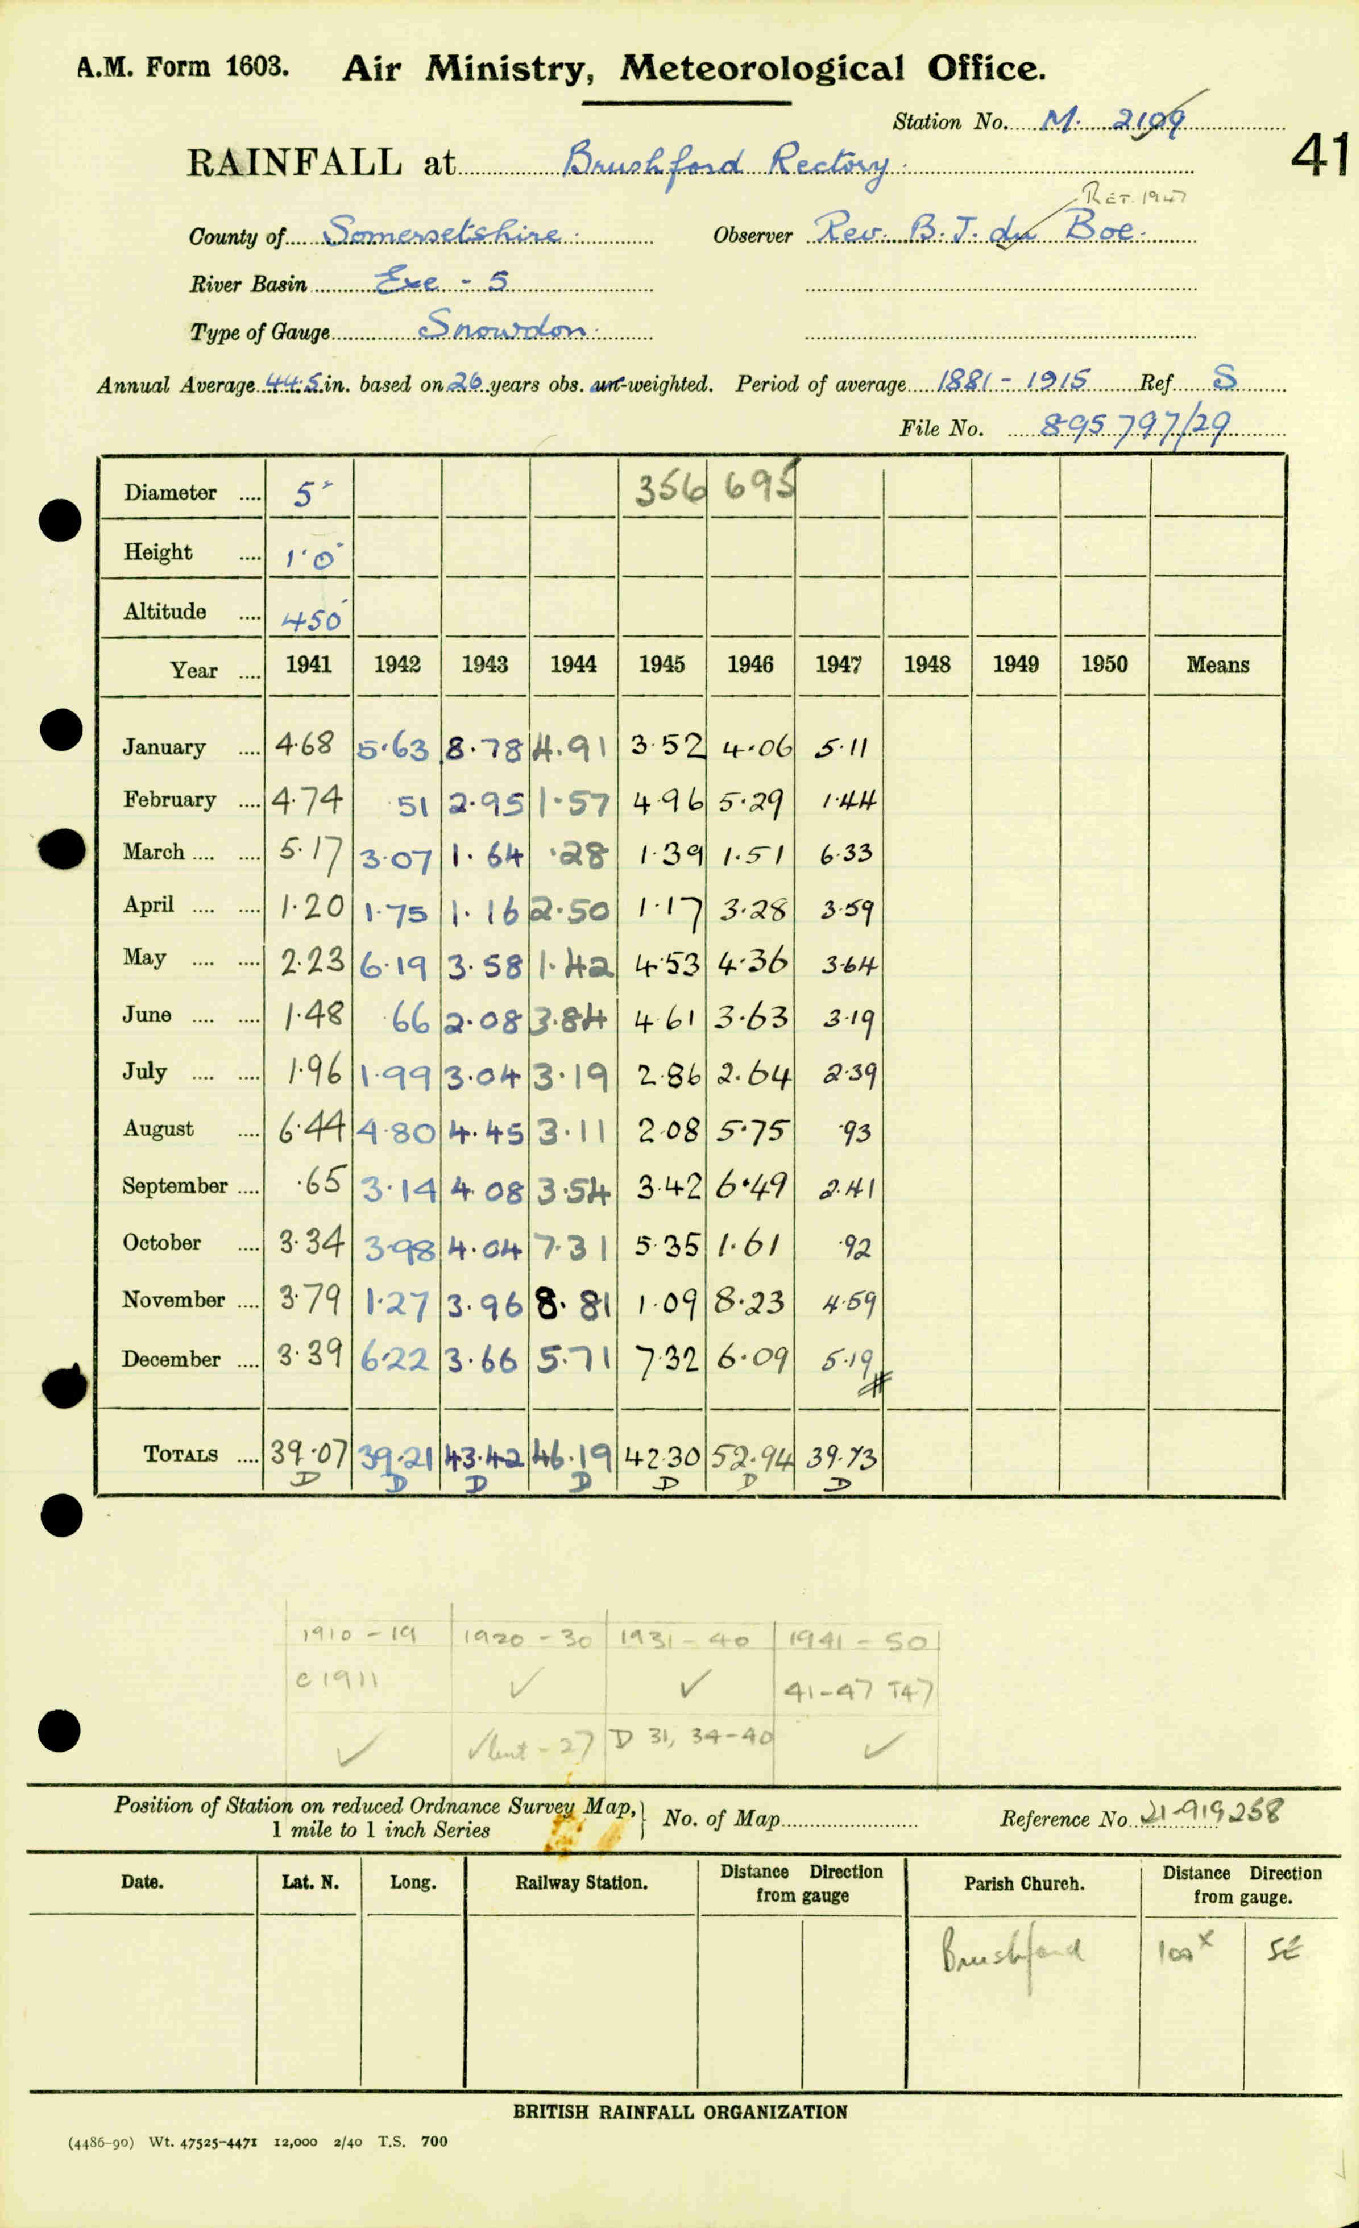 A.M. Form 1603. Air Ministry, Meteorological Office.
Station No. M. 2109
41
RAINFALL at Brushford Rectory.
Ret. 1947
County of Somersetshire. Observer Rev. B. J. du Boe.
River Basin Exe - 5
Type of Gauge Snowdon.
Annual Average 44.5 in. based on 26 years obs. un-weighted. Period of average 1881 - 1915 Ref S
File No. 895797/29
Diameter .... 5" 356 695
Height .... 1'0"
Altitude .... 450'
Year .... 1941 1942 1943 1944 1945 1946 1947 1948 1949 1950 Means
January .... 4.68 5.63 8.78 4.91 3.52 4.06 5.11
February .... 4.74 .51 2.95 1.57 4.96 5.29 1.44
March .... .... 5.17 3.07 1.64 .28 1.39 1.51 6.33
April .... .... 1.20 1.75 1.16 2.50 1.17 3.28 3.59
May .... .... 2.23 6.19 3.58 1.42 4.53 4.36 3.64
June .... .... 1.48 .66 2.08 3.84 4.61 3.63 3.19
July .... .... 1.96 1.99 3.04 3.19 2.86 2.64 2.39
August .... 6.44 4.80 4.45 3.11 2.08 5.75 .93
September .... .65 3.14 4.08 3.54 3.42 6.49 2.41
October .... 3.34 3.98 4.04 7.31 5.35 1.61 .92
November .... 3.79 1.27 3.96 8.81 1.09 8.23 4.59
December .... 3.39 6.22 3.66 5.71 7.32 6.09 5.19
#
TOTALS .... 39.07 39.21 43.42 46.19 42.30 52.94 39.73
D D D D D D D
1910 - 19 1920 - 30 1931 - 40 1941 - 50
c 1911 ✓ ✓ 41-47 T47
✓ ✓ - 27 D 31, 34-40 ✓
Position of Station on reduced Ordnance Survey Map, 1 mile to 1 inch Series } No. of Map Reference No. 21-919258
Date. Lat. N. Long. Railway Station. Distance Direction from gauge Parish Church. Distance Direction from gauge.
Brushford 100x SE
BRITISH RAINFALL ORGANIZATION
(4486-90) Wt. 47525-4471 12,000 2/40 T.S. 700